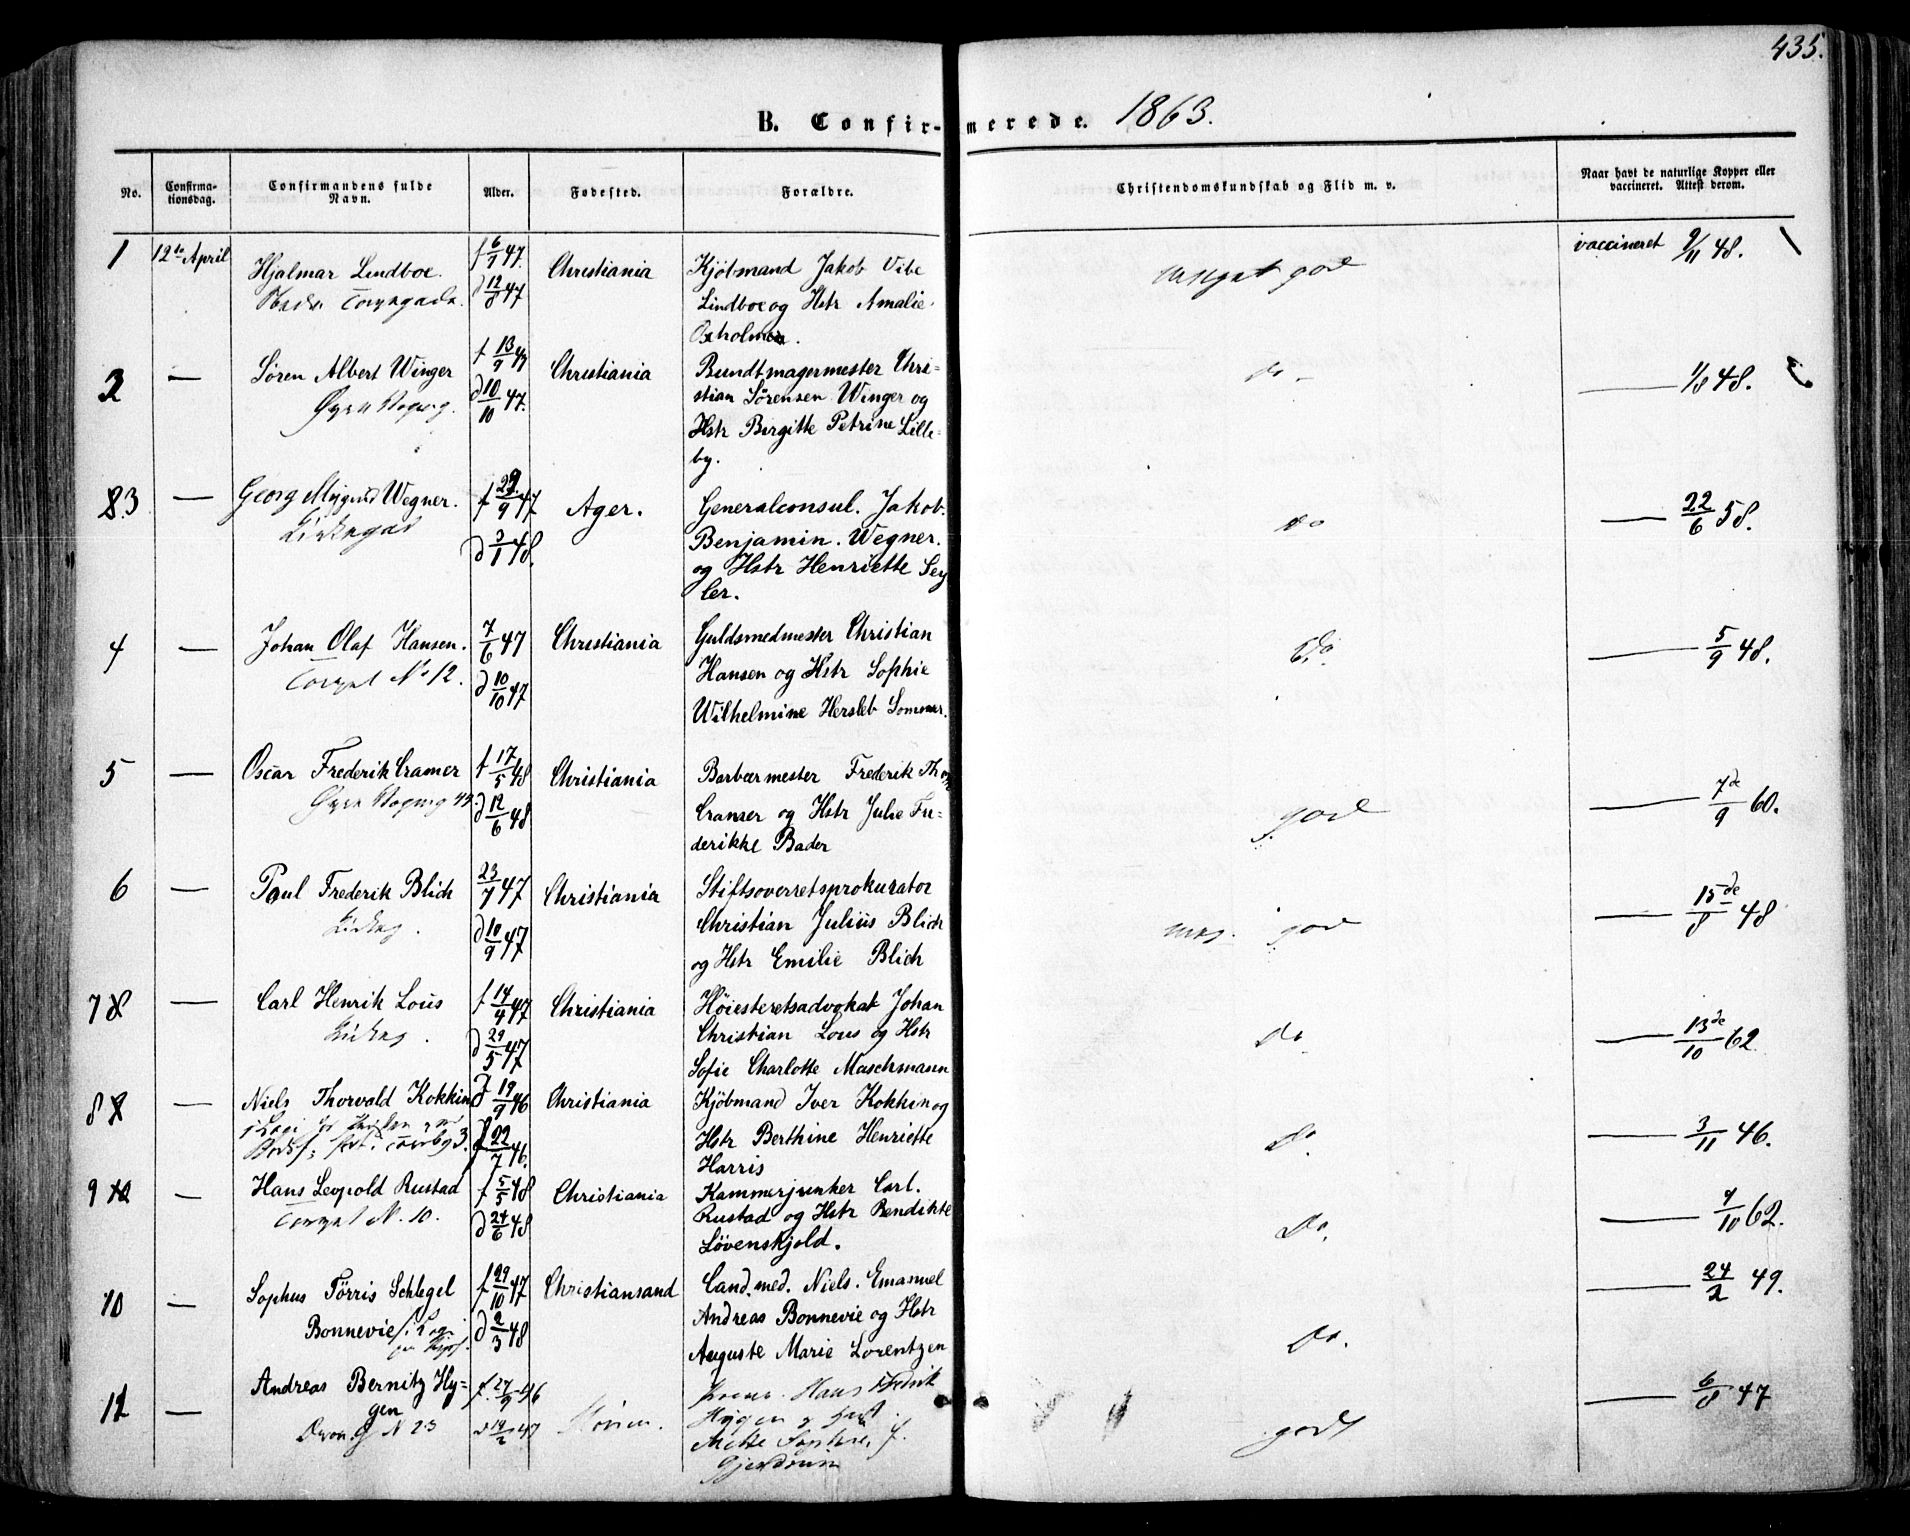 435.
B. Confirmerede. 1863.
No. Confirmationsdag. Confirmandens fulde Navn. Alder. Fødested. Forældre. Christendomskundskab og Flid m. v. Naar havt de naturlige Kopper eller vaccineret. Attest derom.
1 12te April Hjalmar Lindboe. f 6/1 47. Christiania Kjøbmand Jakob Vibe meget god vaccineret 9/11 48.
d 12/8 47 Lindboe og Hstr Amalie
Oxholm.
2 — Søren Albert Winger f 13/9 47 Christiania Bundtmagermester Chri- do — 1/8 48.
Øvre Vogng. d 10/10 47. stian Sørensen Winger og
Hstr Birgitte Petrine Lille-
by.
3 — Georg Mygind Wegner. f 29/9 47 Ager. Generalconsul. Jakob. do — 22/6 58.
Kirkegad d 3/1 48. Benjamin. Wegner.
og Hstr Henriette Sey
ler.
4 — Johan Olaf Hansen. 7/6 47 Christiania Guldsmedmester Christian do. — 5/9 48.
Torvet No 12. d 10/10 47 Hansen og Hstr Sophie
Wilhelmine Hersleb Sommer.
5 — Oscar Frederik Cramer f 17/5 48 Christiania Barbærmester Frederik Thom god — 7de/9 60.
Øvre Vogng 45. d 12/6 48 Cramer og Hstr Julie Fre-
derikke Bader
6 — Paul Frederik Blich 23/7 47 Christiania Stiftsoverretsprokurator meg. god — 15de/8 48
Kirkeg. d 10/9 47 Christian Julius Blich
og Hstr Emilie Blich
7 — Carl Henrik Lous f 14/4 47 Christiania Høiesteretsadvokat Johan do. — 13de/10 62
Kirkeg. d 29/5 47 Christian Lous og Hstr
Sofie Charlotte Maschmann
8 — Niels Thorvald Kokkin d 19/9 46 Christiania Kjøbmand Iver Kokkin og do. — 3/11 46.
f 22/7 46. Hstr Berthine Henriette
Harris
9 — Hans Leopold Rustad f 5/5 48 Christiania Kammerjunker Carl. do. — 4/10 62.
Torvet N. 10. d 24/6 48 Rustad og Hstr Bendikte
Løvenskjold.
10 — Sophus Tørris Schlegel f 29/10 47 Christiansand Cand. med. Niels. Emanuel do. — 24/2 49.
Bonnevie d 2/3 48 Andreas Bonnevie og Hstr
Auguste Marie Lorentzen
11 — Andreas Bernitz Hy- f. 27/9 46 — 6/8 47
gen d 19/2 47 Hans Fredrik godt
N 23 Hygen og Hust
Mette Sophie f.
Gjerdrum